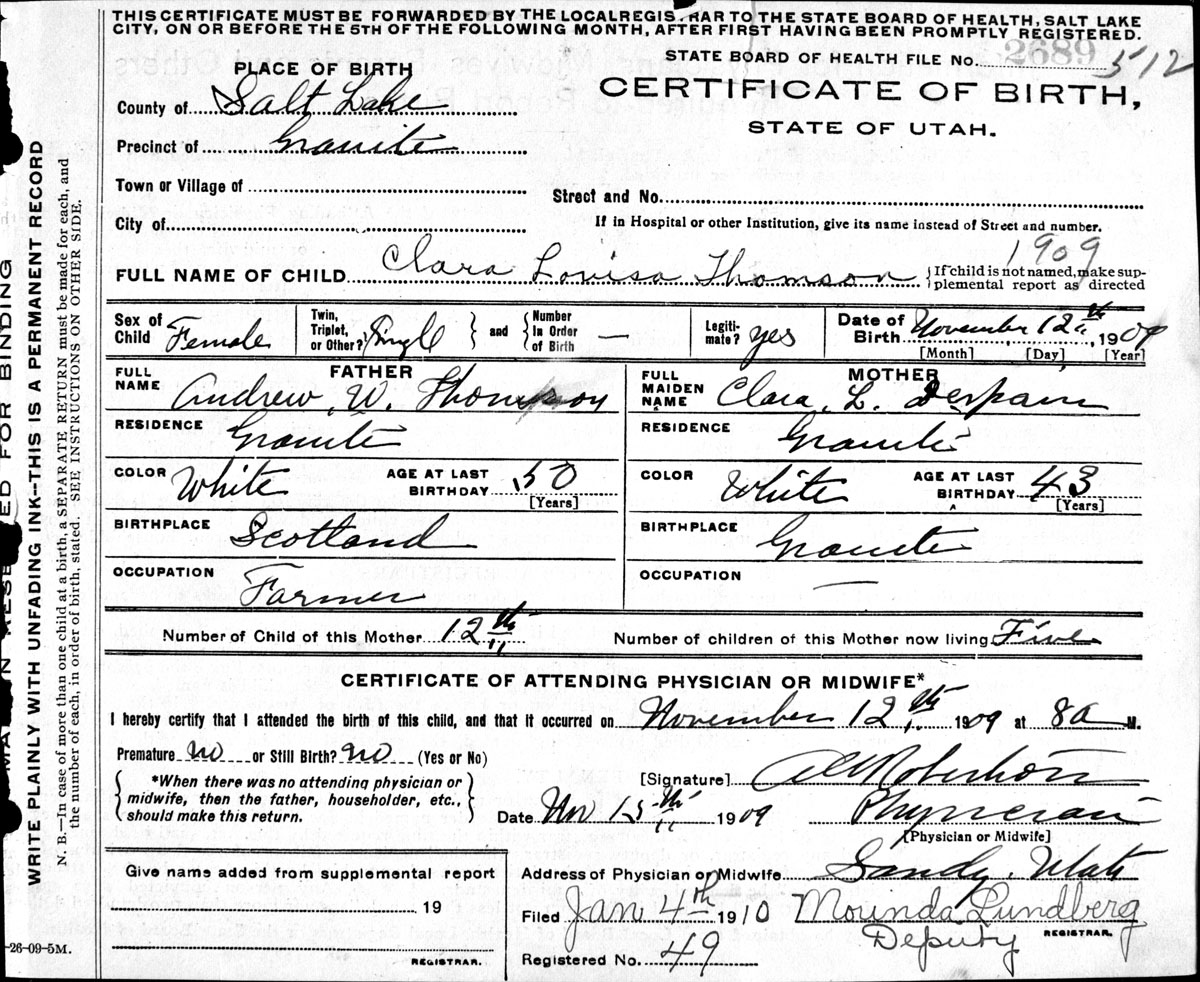 THIS CERTIFICATE MUST BE FORWARDED BY THE LOCAL REGISTRAR TO THE STATE BOARD OF HEALTH, SALT LAKE
CITY, ON OR BEFORE THE 5TH OF THE FOLLOWING MONTH, AFTER FIRST HAVING BEEN PROMPTLY REGISTERED.
STATE BOARD OF HEALTH FILE No. 2689 512
PLACE OF BIRTH
CERTIFICATE OF BIRTH,
STATE OF UTAH.
County of Salt Lake
Precinct of Granite
Town or Village of
Street and No.
City of
If in Hospital or other Institution, give its name instead of Street and number.
1909
FULL NAME OF CHILD Clara Lovisa Thomson { If child is not named, make sup-
plemental report as directed
Sex of Child Female Twin, Triplet, or Other? Single } and { Number In Order of Birth — Legiti-mate? yes Date of Birth November 12th, 1909
[Month] [Day] [Year]
FATHER
FULL NAME Andrew W. Thomson
RESIDENCE Granite
COLOR White AGE AT LAST BIRTHDAY 50
[Years]
BIRTHPLACE Scotland
OCCUPATION Farmer
MOTHER
FULL MAIDEN NAME Clara L. Despain
RESIDENCE Granite
COLOR White AGE AT LAST BIRTHDAY 43
[Years]
BIRTHPLACE Granite
OCCUPATION —
Number of Child of this Mother 12th Number of children of this Mother now living Five
CERTIFICATE OF ATTENDING PHYSICIAN OR MIDWIFE*
I hereby certify that I attended the birth of this child, and that it occurred on November 12th 1909 at 8a M.
Premature no or Still Birth? no (Yes or No)
*When there was no attending physician or
midwife, then the father, householder, etc.,
should make this return.
[Signature] Robertson
Date Nov 15th 1909 Physician
[Physician or Midwife]
Address of Physician or Midwife Sandy, Utah
Filed Jan 4th 1910 Morinda Lundberg
Deputy REGISTRAR.
Registered No. 49
Give name added from supplemental report
19
REGISTRAR.
-26-09-5M.
WRITE PLAINLY WITH UNFADING INK—THIS IS A PERMANENT RECORD
N. B.—In case of more than one child at a birth, a SEPARATE RETURN must be made for each, and
the number of each, in order of birth, stated. SEE INSTRUCTIONS ON OTHER SIDE.
FOR BINDING